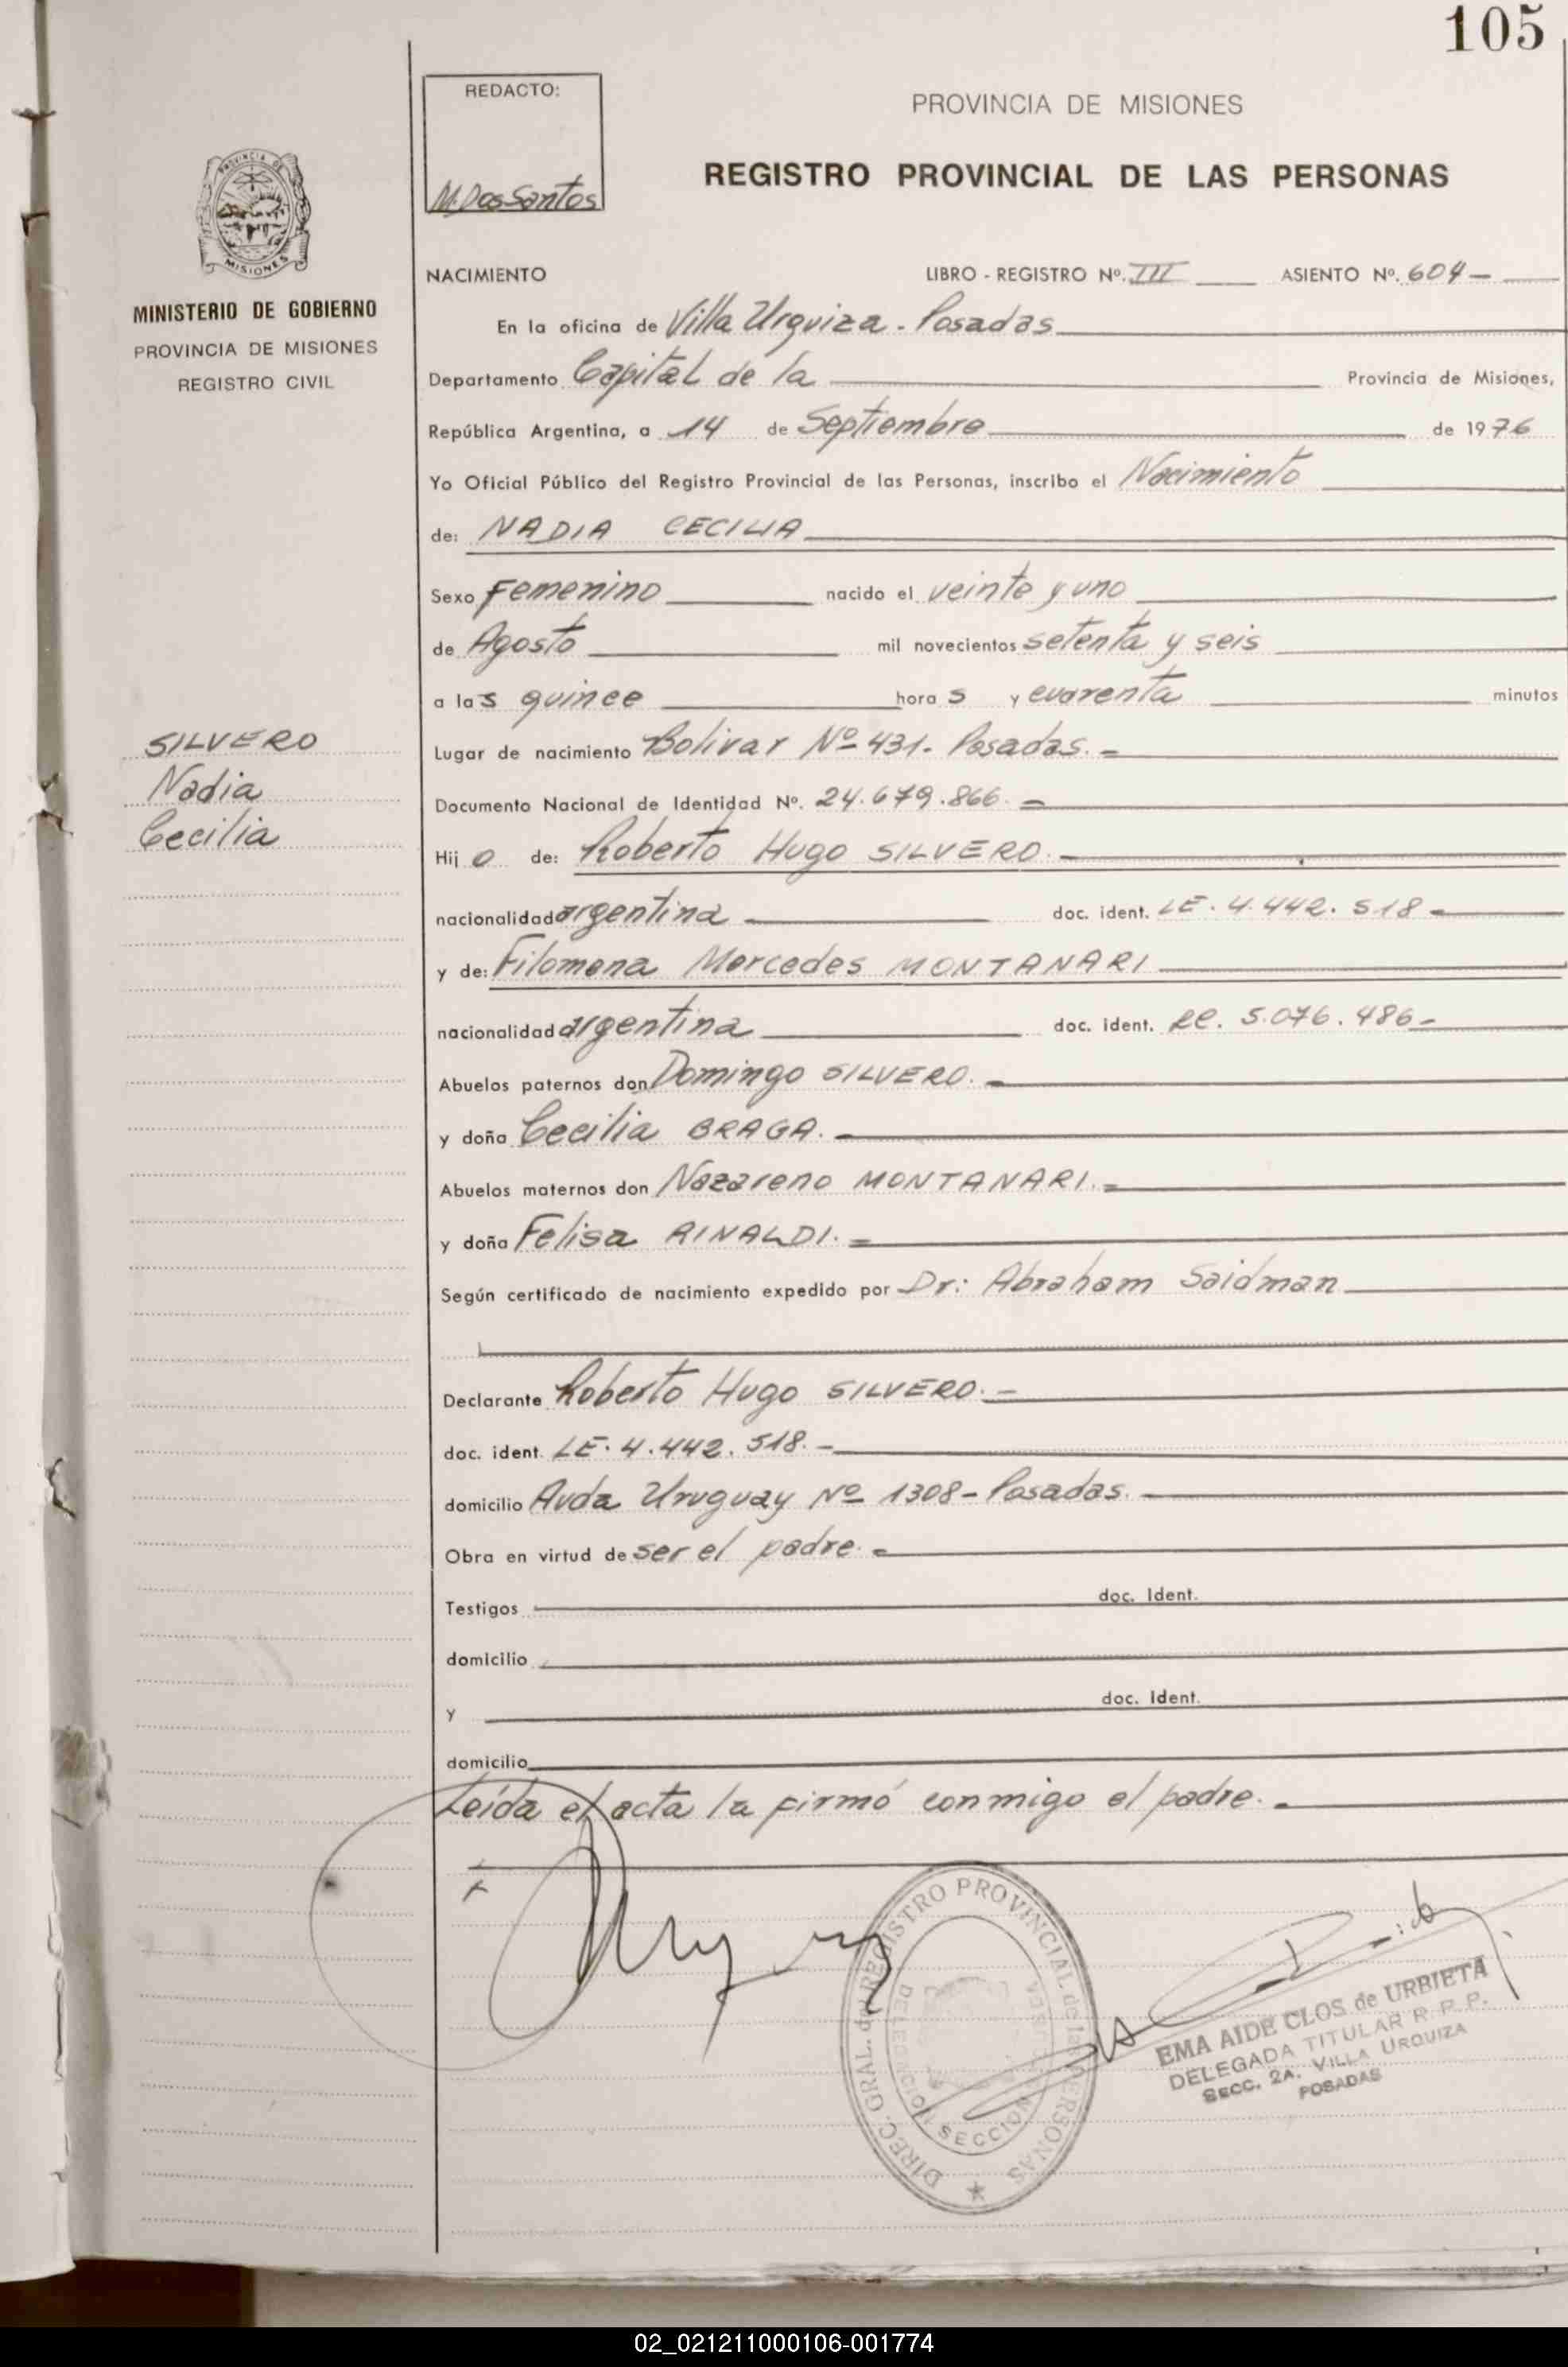 105
REDACTO:
M. Dos Santos
PROVINCIA DE MISIONES
REGISTRO PROVINCIAL DE LAS PERSONAS
PROVINCIA DE
MISIONES
MINISTERIO DE GOBIERNO
PROVINCIA DE MISIONES
REGISTRO CIVIL
NACIMIENTO LIBRO - REGISTRO Nº. III ASIENTO Nº. 604 -
En la oficina de Villa Urquiza - Posadas
Departamento Capital de la Provincia de Misiones,
República Argentina, a 14 de Septiembre de 1976
Yo Oficial Público del Registro Provincial de las Personas, inscribo el Nacimiento
de: NADIA CECILIA
Sexo Femenino nacido el veinte y uno
de Agosto mil novecientos setenta y seis
a las quince horas y cuarenta minutos
SILVERO
Nadia
Cecilia
Lugar de nacimiento Bolivar Nº 431- Posadas. -
Documento Nacional de Identidad Nº. 24.679.866. -
Hijo de: Roberto Hugo SILVERO. -
nacionalidad argentina doc. ident. LE. 4.442.518 -
y de: Filomena Mercedes MONTANARI
nacionalidad argentina doc. ident. LC. 5.076.486 -
Abuelos paternos don Domingo SILVERO. -
y doña Cecilia BRAGA. -
Abuelos maternos don Nazareno MONTANARI. -
y doña Felisa RINALDI. -
Según certificado de nacimiento expedido por Dr: Abraham Saidman
Declarante Roberto Hugo SILVERO. -
doc. ident. LE. 4.442.518. -
domicilio Avda Uruguay Nº 1308 - Posadas. -
Obra en virtud de ser el padre. -
Testigos doc. Ident.
domicilio
y doc. Ident.
domicilio
Leída el acta la firmó conmigo el padre. -
DIREC. GRAL. del REGISTRO PROVINCIAL de las PERSONAS
DELEGACION SECCION
EMA AIDE CLOS de URBIETA
DELEGADA TITULAR R.P.P.
SECC. 2A. VILLA URQUIZA
POSADAS
02_021211000106-001774